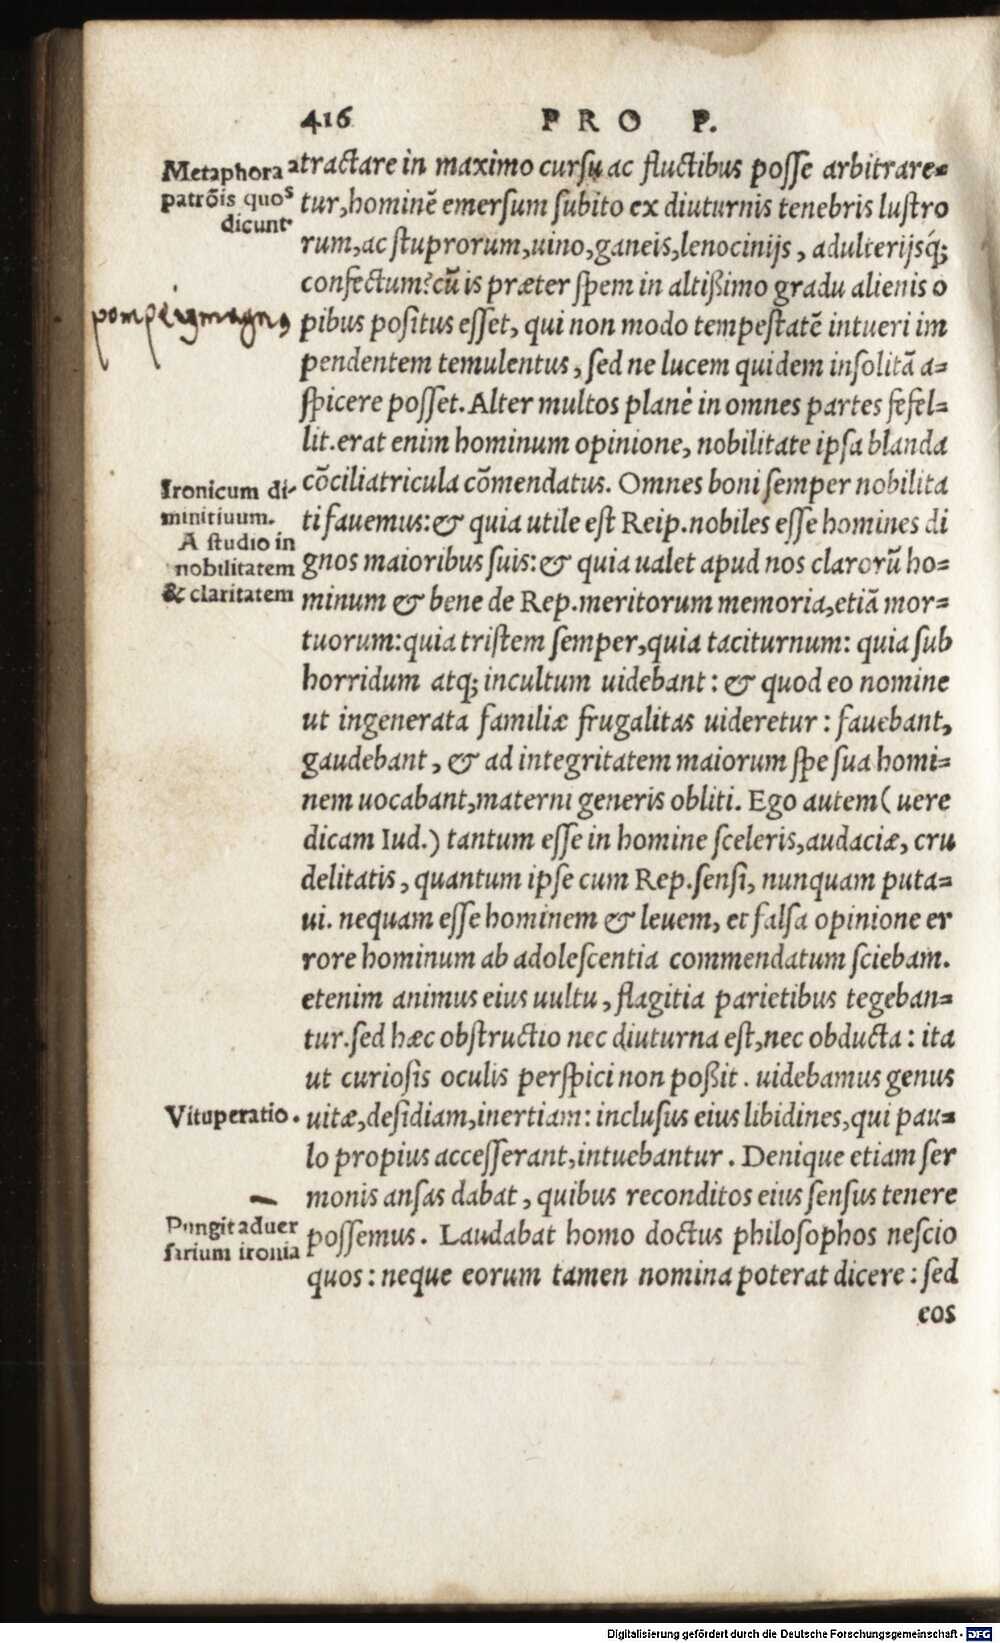 416 PRO P.
Metaphora
patrōis quos
dicunt.
tractare in maximo cursu ac fluctibus posse arbitrare=
tur, hominē emersum subito ex diuturnis tenebris lustro
rum, ac stuprorum, uino, ganeis, lenocinijs, adulterijsq́;
confectum? cū is præter spem in altißimo gradu alienis o
pompeiusmagnus
pibus positus esset, qui non modo tempestatē intueri im
pendentem temulentus, sed ne lucem quidem insolitā a=
spicere posset. Alter multos planè in omnes partes fefel=
lit. erat enim hominum opinione, nobilitate ipsa blanda
Ironicum di-
minitiuum.
A studio in
nobilitatem
& claritatem
cōciliatricula cōmendatus. Omnes boni semper nobilita
ti fauemus: & quia utile est Reip. nobiles esse homines di
gnos maioribus suis: & quia ualet apud nos clarorū ho=
minum & bene de Rep. meritorum memoria, etiā mor=
tuorum: quia tristem semper, quia taciturnum: quia sub
horridum atq; incultum uidebant: & quod eo nomine
ut ingenerata familiæ frugalitas uideretur: fauebant,
gaudebant, & ad integritatem maiorum spe sua homi=
nem uocabant, materni generis obliti. Ego autem (uere
dicam Iud.) tantum esse in homine sceleris, audaciæ, cru
delitatis, quantum ipse cum Rep. sensi, nunquam puta=
ui. nequam esse hominem & leuem, et falsa opinione er
rore hominum ab adolescentia commendatum sciebam.
etenim animus eius uultu, flagitia parietibus tegeban=
tur. sed hæc obstructio nec diuturna est, nec obducta: ita
ut curiosis oculis perspici non poßit. uidebamus genus
Vituperatio.
uitæ, desidiam, inertiam: inclusus eius libidines, qui pau=
lo propius accesserant, intuebantur. Denique etiam ser
monis ansas dabat, quibus reconditos eius sensus tenere
Pungit aduer
sarium ironia
possemus. Laudabat homo doctus philosophos nescio
quos: neque eorum tamen nomina poterat dicere: sed
eos
Digitalisierung gefördert durch die Deutsche Forschungsgemeinschaft - DFG